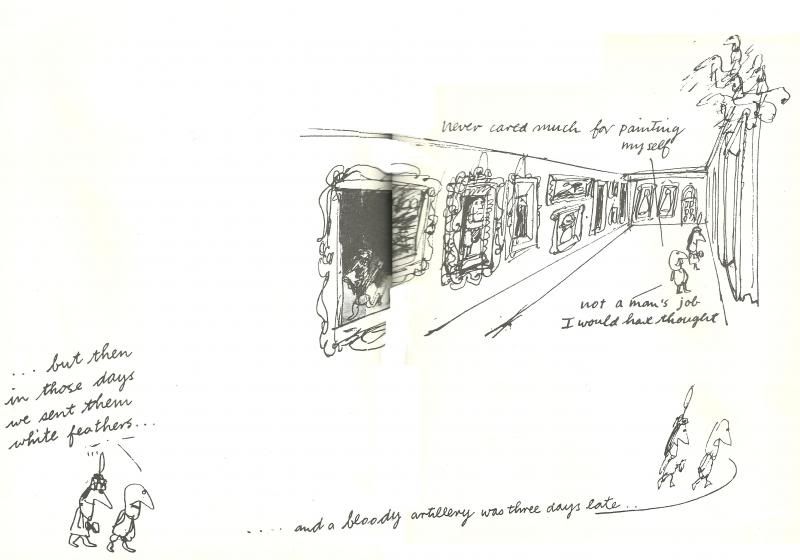 never cared much for painting
myself
not a man's job
I would have thought
... but then
in those days
we sent them
white feathers...
.... and a bloody artillery was three days late..